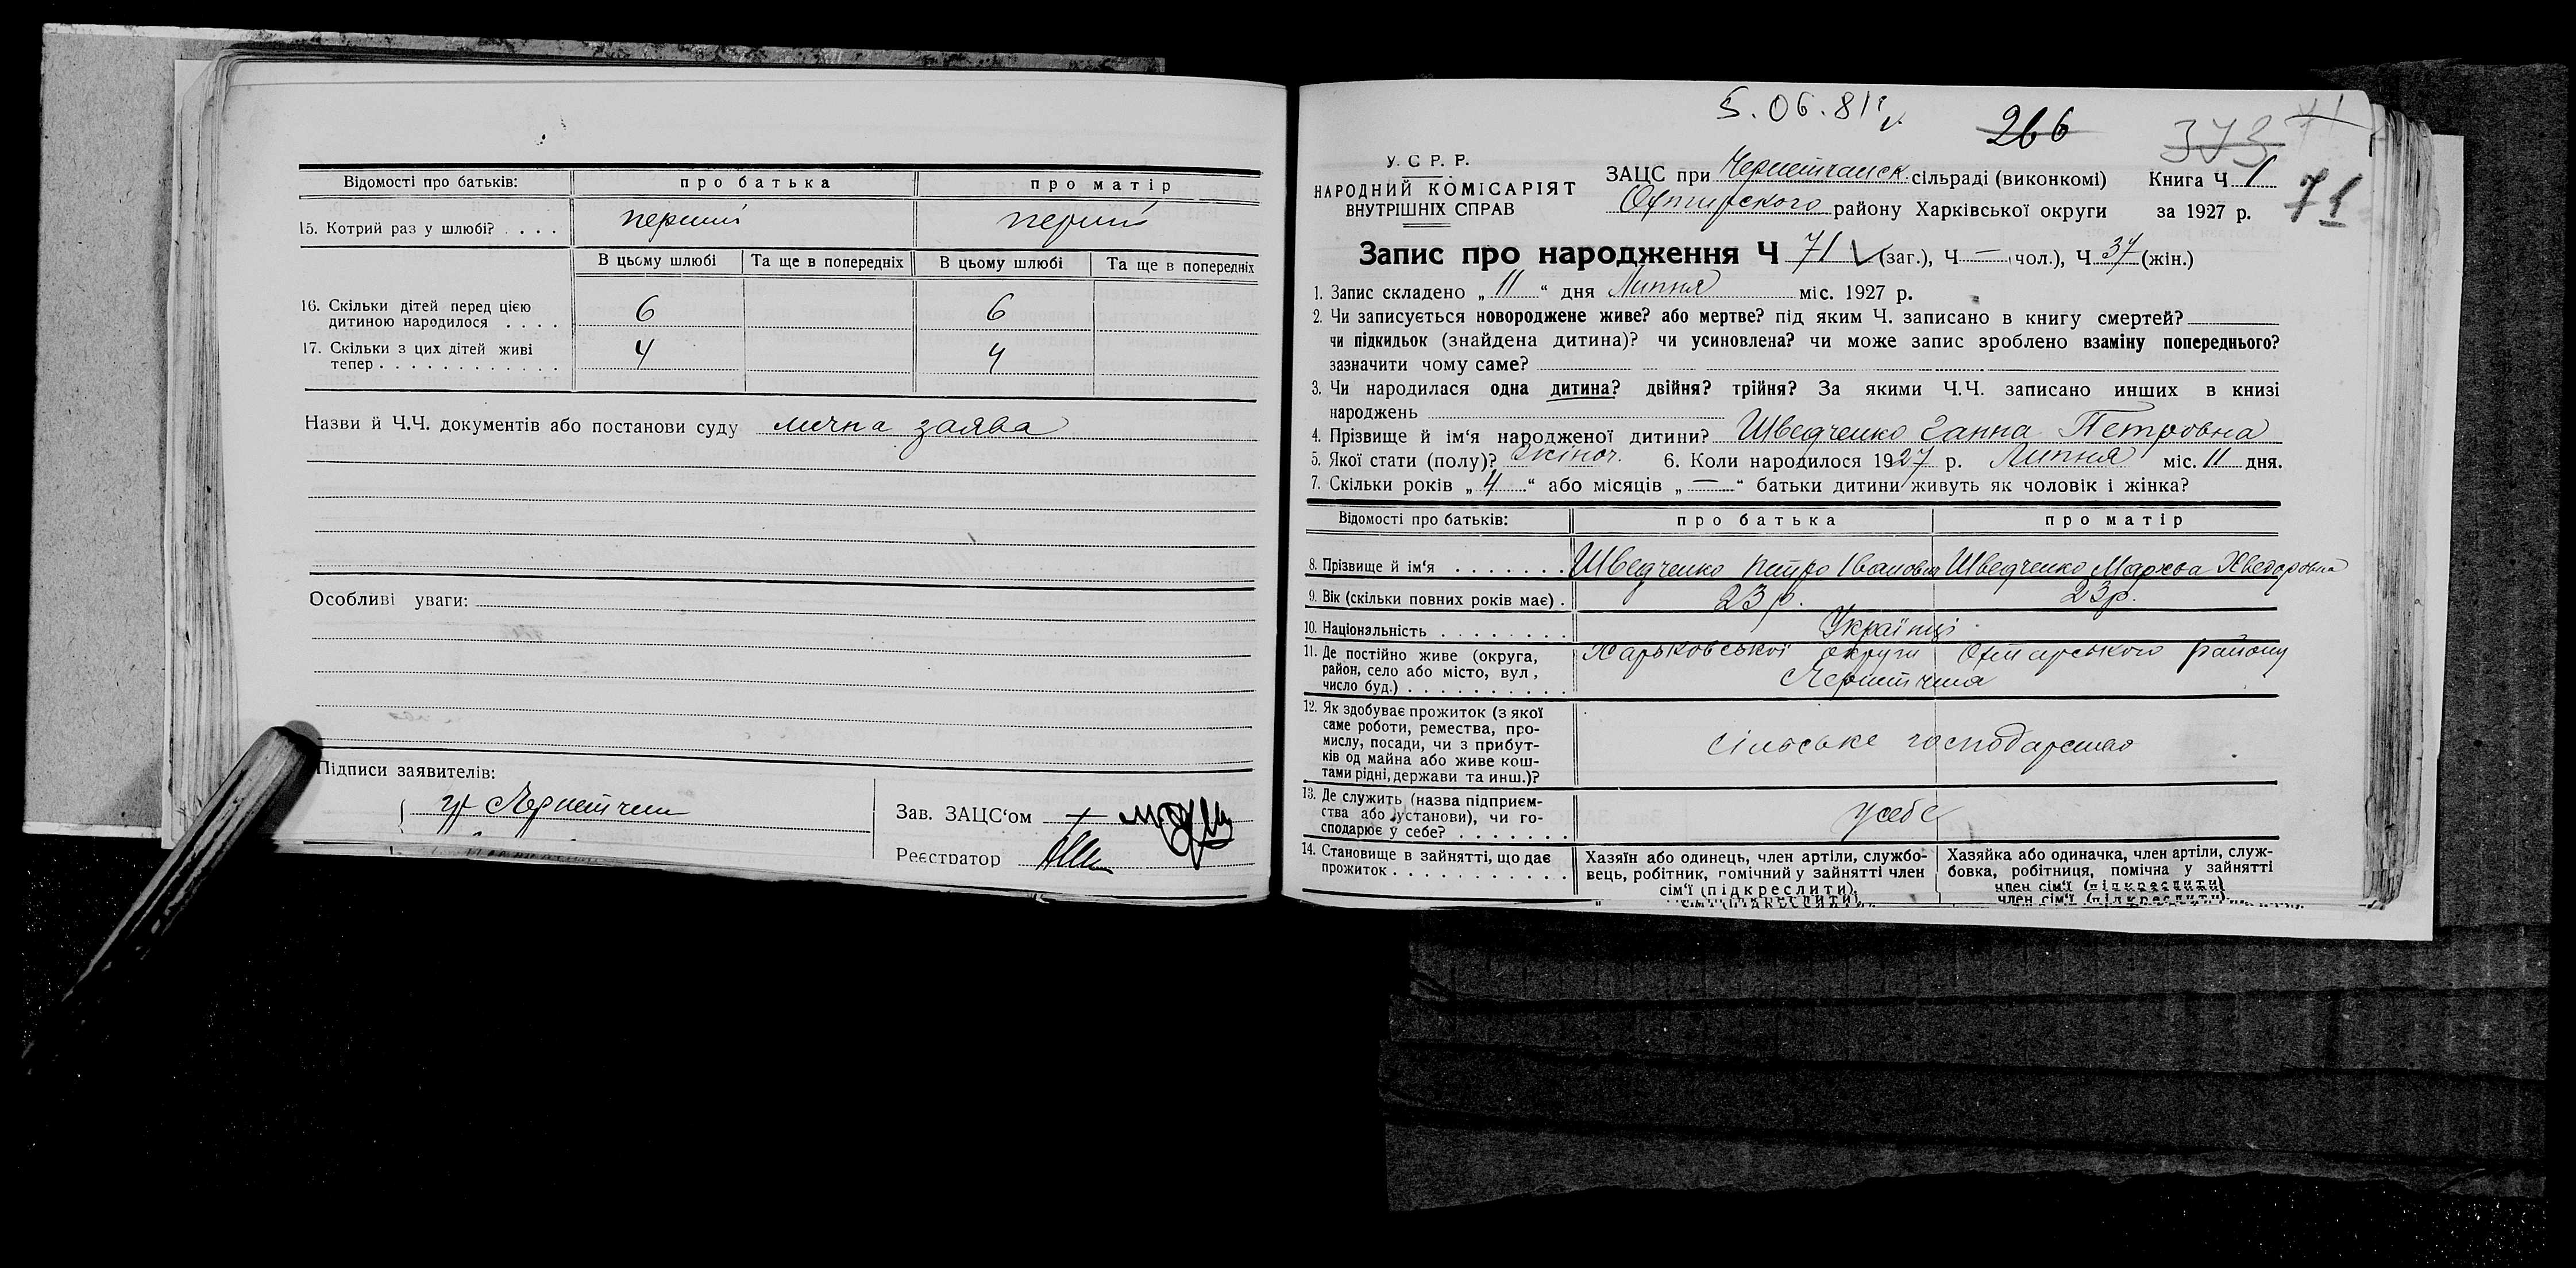 Відомості про батьків: про батька про матір
15. Котрий раз у шлюбі? . . . . перший перший
В цьому шлюбі Та ще в попередніх В цьому шлюбі Та ще в попередніх
16. Скільки дітей перед цією
дитиною народилося . . . . 6 6
17. Скільки з цих дітей живі
тепер . . . . . . . . . . . . 4 4
Назви й Ч.Ч. документів або постанови суду лична заява
Особливі уваги:
Підписи заявителів:
Зав. ЗАЦС‘ом
Реєстратор
5.06.81г
266
373
71
71
У. С Р. Р.
НАРОДНИЙ КОМІСАРІЯТ
ВНУТРІШНІХ СПРАВ
ЗАЦС при Чернетчанск. сільраді (виконкомі) Книга Ч 1
Охтирского району Харківської округи за 1927 р.
Запис про народження Ч 71 (заг.), Ч — чол.), Ч 37 (жін.)
1. Запис складено „ 11 “ дня Липня міс. 1927 р.
2. Чи записується новороджене живе? або мертве? під яким Ч. записано в книгу смертей?
чи підкидьок (знайдена дитина)? чи усиновлена? чи може запис зроблено взаміну попереднього?
зазначити чому саме?
3. Чи народилася одна дитина? двійня? трійня? За якими Ч.Ч. записано инших в книзі
народжень
4. Прізвище й ім‘я народженої дитини? Шведченко Ганна Петровна
5. Якої стати (полу)? жіноч. 6. Коли народилося 1927 р. Липня міс. 11 дня.
7. Скільки років „ 4 “ або місяців „ — “ батьки дитини живуть як чоловік і жінка?
Відомості про батьків: про батька про матір
8. Прізвище й ім‘я . . . . . . . Шведченко Петро Іванович Шведченко Марфа Хведоровна
9. Вік (скільки повних років має) . 23 р. 23 р.
10. Національність . . . . . . . . Українці
11. Де постійно живе (округа,
район, село або місто, вул,
число буд.) . . . . . . . . . .
Харьковської округи Охтирського району
Чернетчина
12. Як здобуває прожиток (з якої
саме роботи, ремества, про-
мислу, посади, чи з прибут-
ків од майна або живе кош-
тами рідні, держави та инш.)?
сільське господарство
13. Де служить (назва підприєм-
ства або установи), чи го-
сподарює у себе? . . . . . . .
у себе
14. Становище в зайнятті, що дає
прожиток . . . . . . . . . . .
Хазяїн або одинець, член артіли, службо-
вець, робітник, помічний у зайнятті член
сім‘ї (підкреслити).
Хазяйка або одиначка, член артіли, служ-
бовка, робітниця, помічна у зайнятті
член сім‘ї (підкреслити)
член сім‘ї (підкреслити).